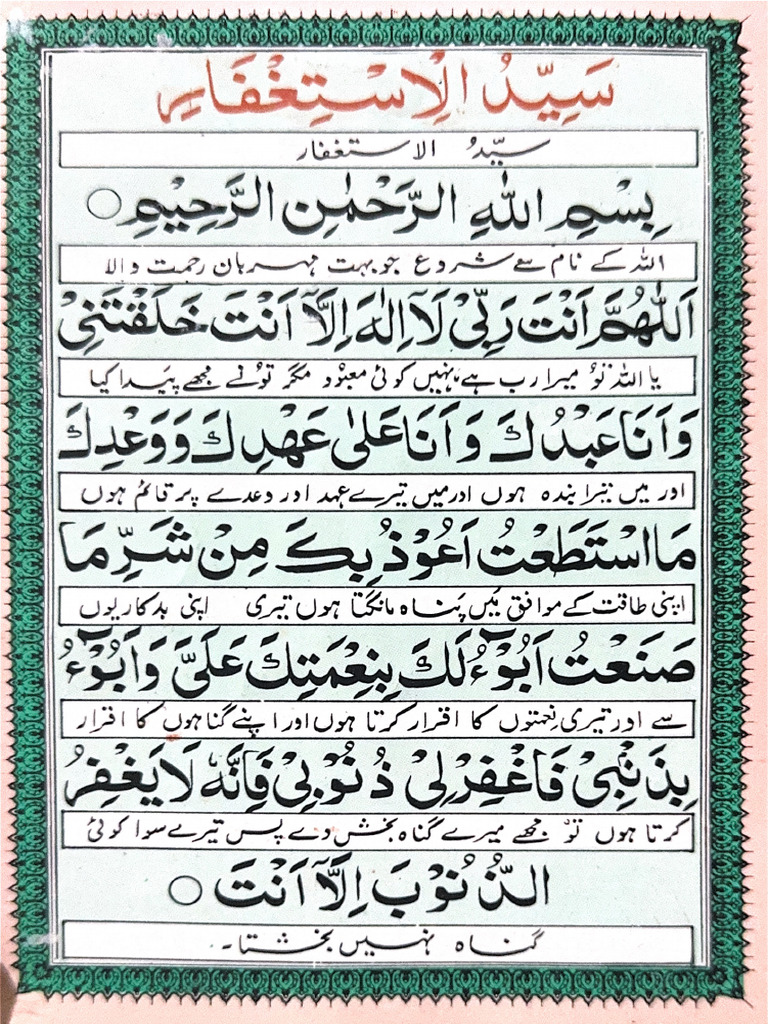 سَيِّدُ الْاِسْتِغْفَارِ
سیّدُ الاستغفار
بِسْمِ اللّٰهِ الرَّحْمٰنِ الرَّحِيْمِ ○
اللہ کے نام سے شروع جو بہت مہربان رحمت والا
اَللّٰهُمَّ اَنْتَ رَبِّیْ لَآ اِلٰهَ اِلَّآ اَنْتَ خَلَقْتَنِیْ
یا اللہ تُو میرا رب ہے نہیں کوئی معبُود مگر تُو نے مجھے پَیدا کیا
وَاَنَا عَبْدُكَ وَاَنَا عَلٰی عَهْدِكَ وَوَعْدِكَ
اور میں تیرا بندہ ہوں اور میں تیرے عہد اور وعدے پر قائم ہوں
مَا اسْتَطَعْتُ اَعُوْذُ بِكَ مِنْ شَرِّ مَا
اپنی طاقت کے موافق مَیں پَناہ مانگتا ہوں تیری اپنی بدکاریوں
صَنَعْتُ اَبُوْٓءُ لَكَ بِنِعْمَتِكَ عَلَیَّ وَاَبُوْٓءُ
سے اور تیری نعمتوں کا اقرار کرتا ہوں اور اپنے گناہوں کا اقرار
بِذَنْۢبِیْ فَاغْفِرْلِیْ ذُنُوْبِیْ فَاِنَّهٗ لَا يَغْفِرُ
کرتا ہوں تُو مجھے میرے گناہ بخش دے پس تیرے سوا کوئی
الذُّنُوْبَ اِلَّآ اَنْتَ ○
گناہ نہیں بخشتا۔